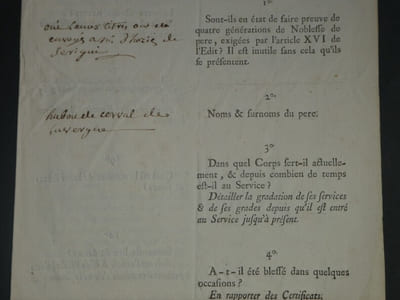 1°
Sont-ils en état de faire preuve de
quatre générations de Noblesse de
pere, exigées par l'article XVI de
l'Edit ? Il est inutile sans cela qu'ils
se présentent.
oui leurs titres ont été
envoyés a mr d'hozier de
serigni
2°
Noms & surnoms du pere.
hutou de
3°
Dans quel Corps sert-il actuelle-
ment, & depuis combien de temps
est-il au Service ?
Détailler la gradation de ses services
& de ses grades depuis qu'il est entré
au Service jusqu'à présent.
4°
A-t-il été blessé dans quelques
occasions ?
En rapporter des Certificats.